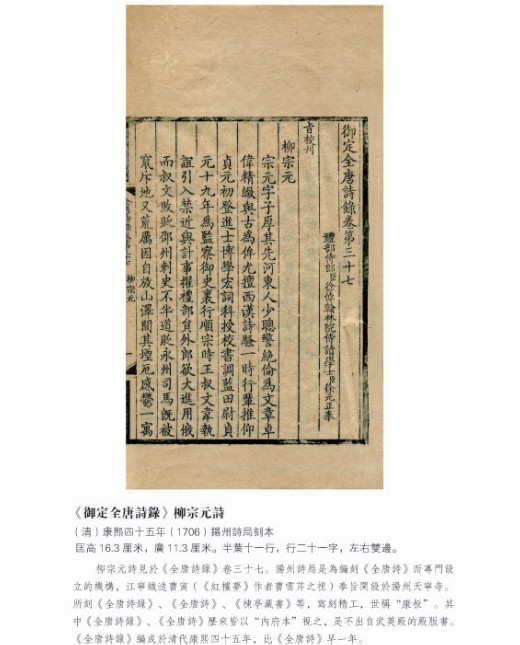 御定全唐詩錄卷第三十七
禮部侍郎臣徐倬翰林院侍讀學士臣徐元正奉
旨校刊
柳宗元
宗元字子厚其先河東人少聰警絶倫爲文章卓
偉精緻與古爲侔尤擅西漢詩騷一時行輩推仰
貞元初登進士博學宏詞科授校書調藍田尉貞
元十九年爲監察御史裏行順宗時王叔文韋執
誼引入禁近與計事擢禮部員外郎欲大進用俄
而叔文敗貶邵州刺史不半道貶永州司馬既被
竄斥地又荒厲因自放山澤間其堙厄感鬱一寓
柳宗元
《御定全唐詩錄》柳宗元詩
（清）康熙四十五年（1706）揚州詩局刻本
匡高 16.3 厘米，廣 11.3 厘米。半葉十一行，行二十一字，左右雙邊。
柳宗元詩見於《全唐詩錄》卷三十七。揚州詩局是為編刻《全唐詩》而專門設
立的機構，江寧織造曹寅（《紅樓夢》作者曹雪芹之祖）奉旨開設於揚州天寧寺。
所刻《全唐詩錄》、《全唐詩》、《楝亭藏書》等，寫刻精工，世稱“康板”。其
中《全唐詩錄》、《全唐詩》歷來皆以“內府本”視之，是不出自武英殿的殿版書。
《全唐詩錄》編成於清代康熙四十五年，比《全唐詩》早一年。